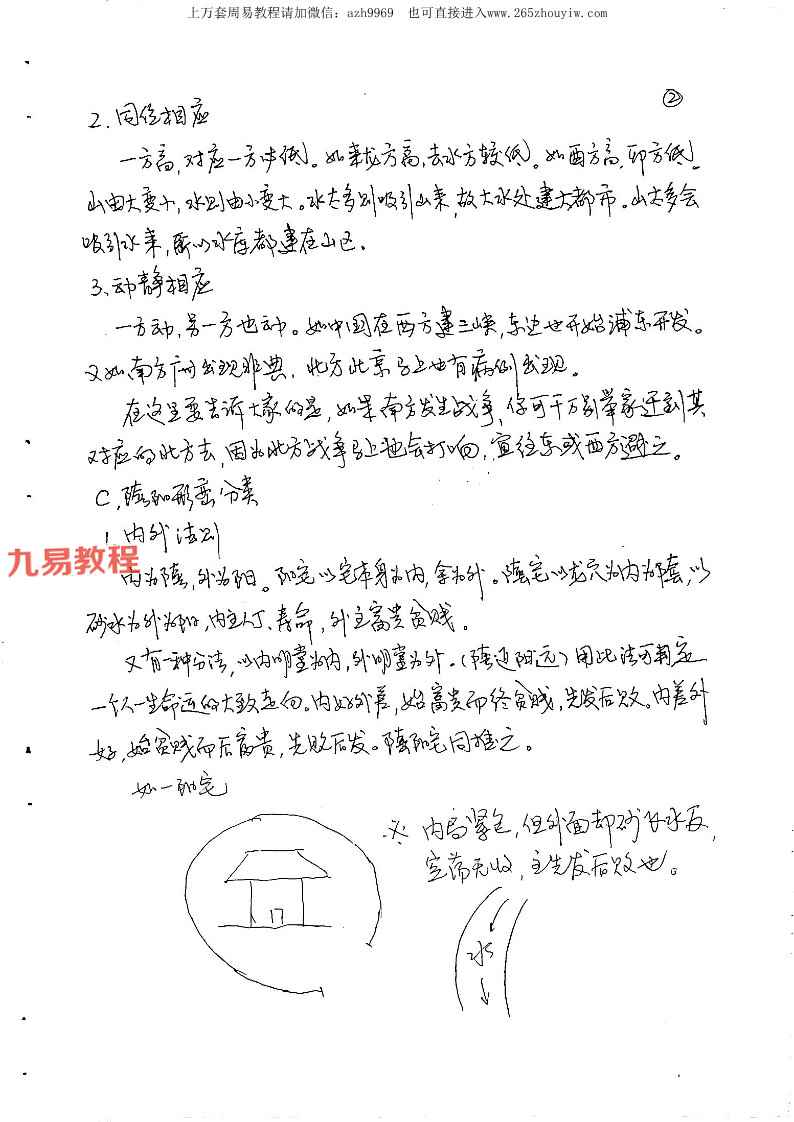 上万套周易教程请加微信：azh9969 也可直接进入www.265zhouyiw.com
②
2.同位相应
一方高,对应一方中低。如来龙方高,去水方较低。如酉方高,卯方低。
山由大变小,水则由小变大。水太多则吸引山来,故大水处建大都市。山太多会
吸引水来,所以水库都建在山区.
3.动静相应
一方动,另一方也动。如中国在西方建三峡,东边也开始浦东开发。
又如南方广州出现非典,北方北京马上也有病例出现。
在这里要告诉大家的是,如果南方发生战争,你可千万别举家迁到其
对应的北方去,因为北方战争马上也会打响,宜往东或西方避之。
C,阴阳形峦分类
1.内外法则
九易教程
内为阴,外为阳。阳宅以宅本身为内,余为外。阴宅以龙穴为内为阴,以
砂水为外为阳,内主人丁、寿命,外主富贵贫贱。
又有一种分法,以内明堂为内,外明堂为外。(阴近阳远)用此法可判定
一个人一生命运的大致走向。内好外差,始富贵而终贫贱,先发后败。内差外
好,始贫贱而后富贵,先败后发。阴阳宅同推之。
如一阳宅
※ 内局紧包,但外面却砂飞水反,
空荡无收,主先发后败也。
水